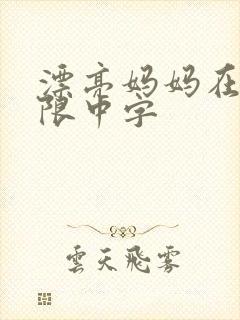 漂亮妈妈在
限中字
雲天飛雾